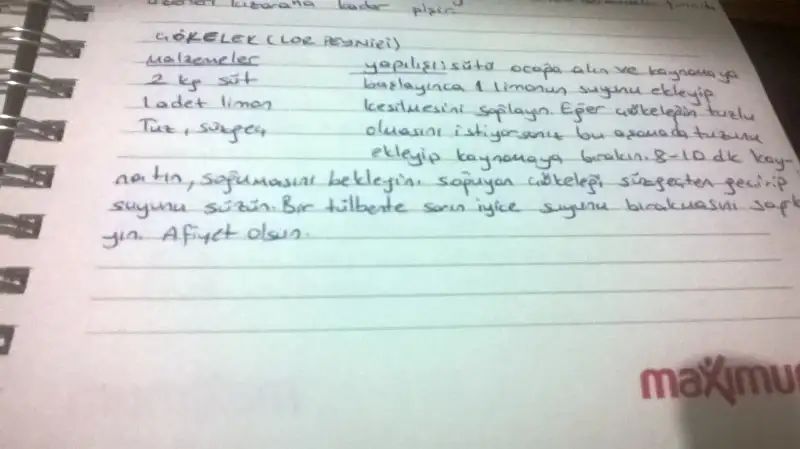 kızarana kadar pişir
ÇÖKELEK (LOR PEYNİRİ)
Malzemeler
2 kg süt
1 adet limon
Tuz, süzgeç
yapılışı: sütü ocağa alın ve kaynamaya
başlayınca 1 limonun suyunu ekleyip
kesilmesini sağlayın. Eğer çökeleğin tuzlu
olmasını istiyorsanız bu aşamada tuzunu
ekleyip kaynamaya bırakın. 8-10 dk kay-
natın, soğumasını bekleyin. soğuyan çökeleği süzgeçten geçirip
suyunu süzün. Bir tülbente sarın iyice suyunu bırakmasını sağla
yın. Afiyet olsun.
maximu